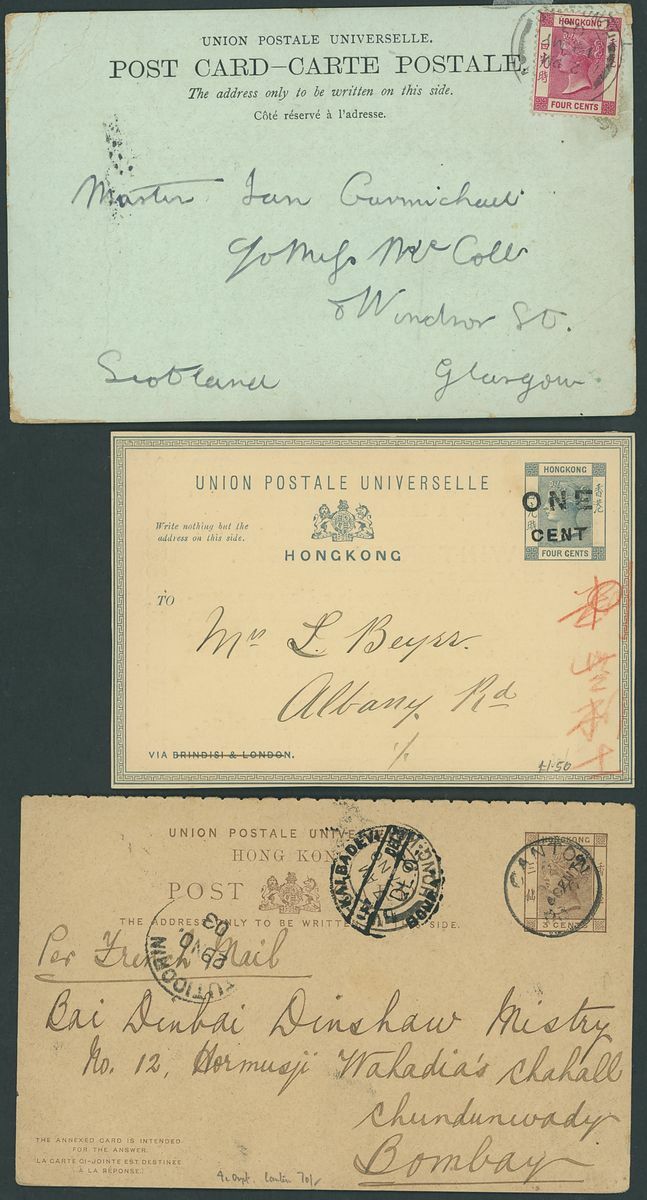 UNION POSTALE UNIVERSELLE.
POST CARD–CARTE POSTALE.
The address only to be written on this side.
Côté réservé à l'adresse.
HONGKONG
FOUR CENTS
Master Ian Carmichael
c/o Miss McColl
8 Windsor St.
Scotland Glasgow
UNION POSTALE UNIVERSELLE
Write nothing but the
address on this side.
HONGKONG
HONGKONG
香港
ONE
CENT
FOUR CENTS
TO
Mrs L.
Albany Rd
VIA BRINDISI & LONDON.
1-1-50
UNION POSTALE UNIVE
HONG KON
POST
THE ADDRESS ONLY TO BE WRITTEN SIDE.
HONGKONG
3 CENT
CANTON
KALBADEVI
TUTICORIN
29 NO.
03
Per French Mail
Bai Dinbai Dinshaw Mistry
No. 12, Hormusji Wahadia's chahall
chundunwady
Bombay
THE ANNEXED CARD IS INTENDED
FOR THE ANSWER.
LA CARTE CI-JOINTE EST DESTINÉE
À LA RÉPONSE.